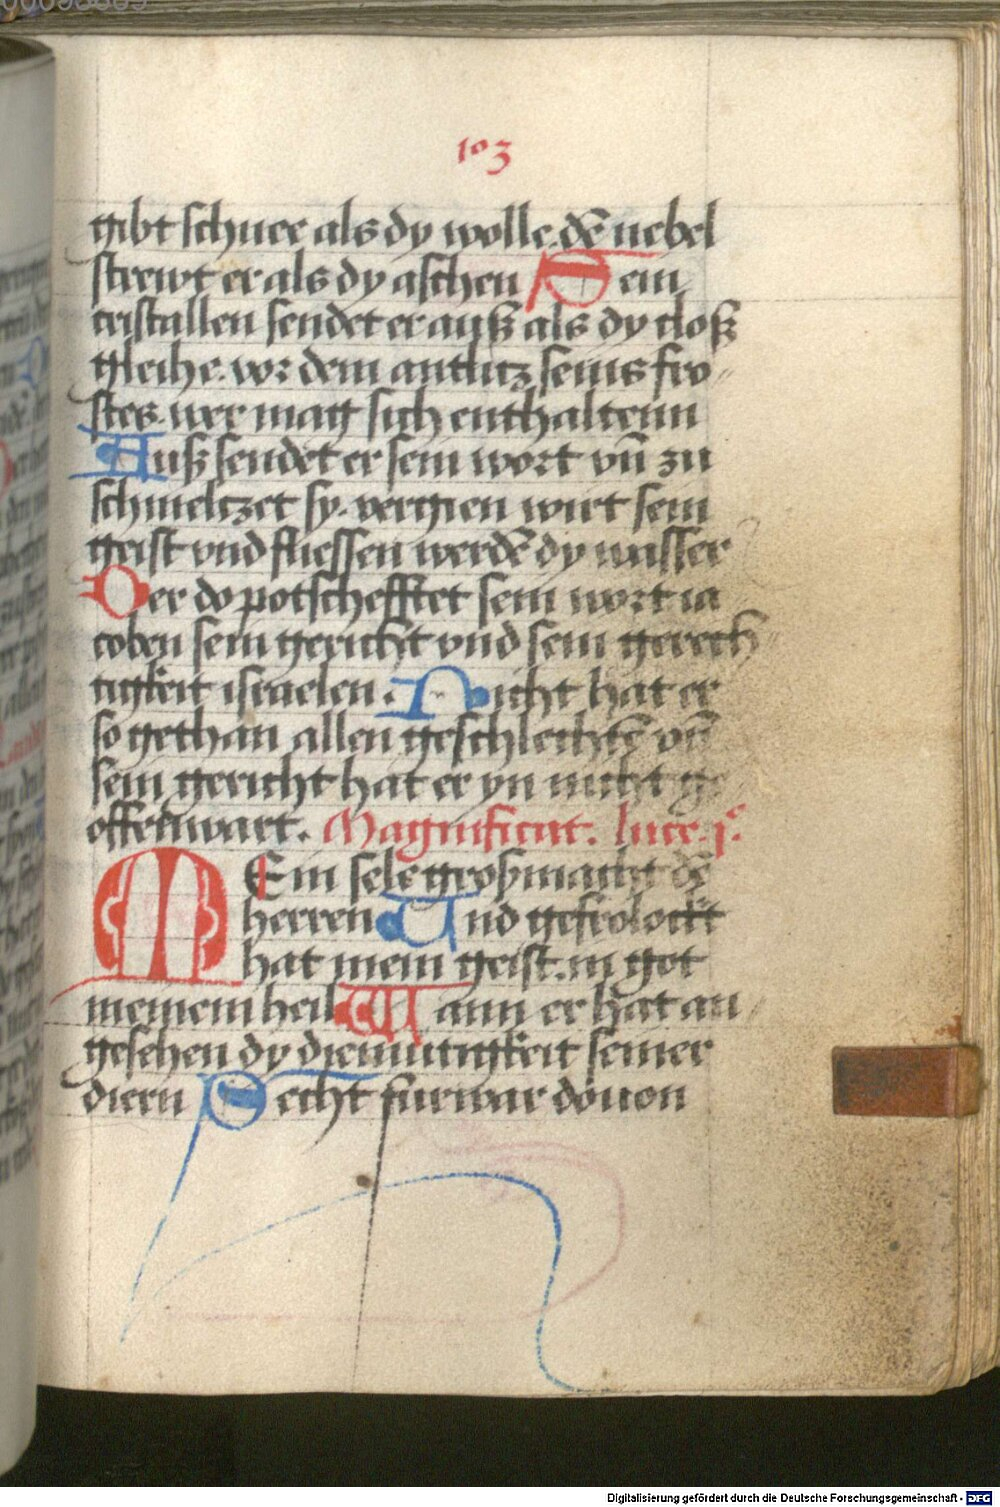 00096869
103
gibt schnee als dy wolle. dē nebel
strewt er als dy aschen Sein
cristallen sendet er auß als dy cloß
gleihe. vor dem antlitz seins fro〃
stes. wer mag sich enthaltenn
Auß sendet er sein wort vn̄ zu
schmeltzet sy. vergien wirt sein
geist vnd fliessen werdē dy wasser
Der do potschefftet sein wort ia
coben sein gericht vnd sein gerech
tigkeit israelen. Nicht hat er
so gethan allen geschlechtē vn̄
sein gericht hat er yn nicht ge
offenwart. Magnificat. luce. j°.
MEin sele groß macht dē
herren Und gefrolockt
hat mein geist. in got
meinem heil Wann er hat an〃
gesehen dy diemutigkeit seiner
diern Secht furwar douon
Digitalisierung gefördert durch die Deutsche Forschungsgemeinschaft - DFG